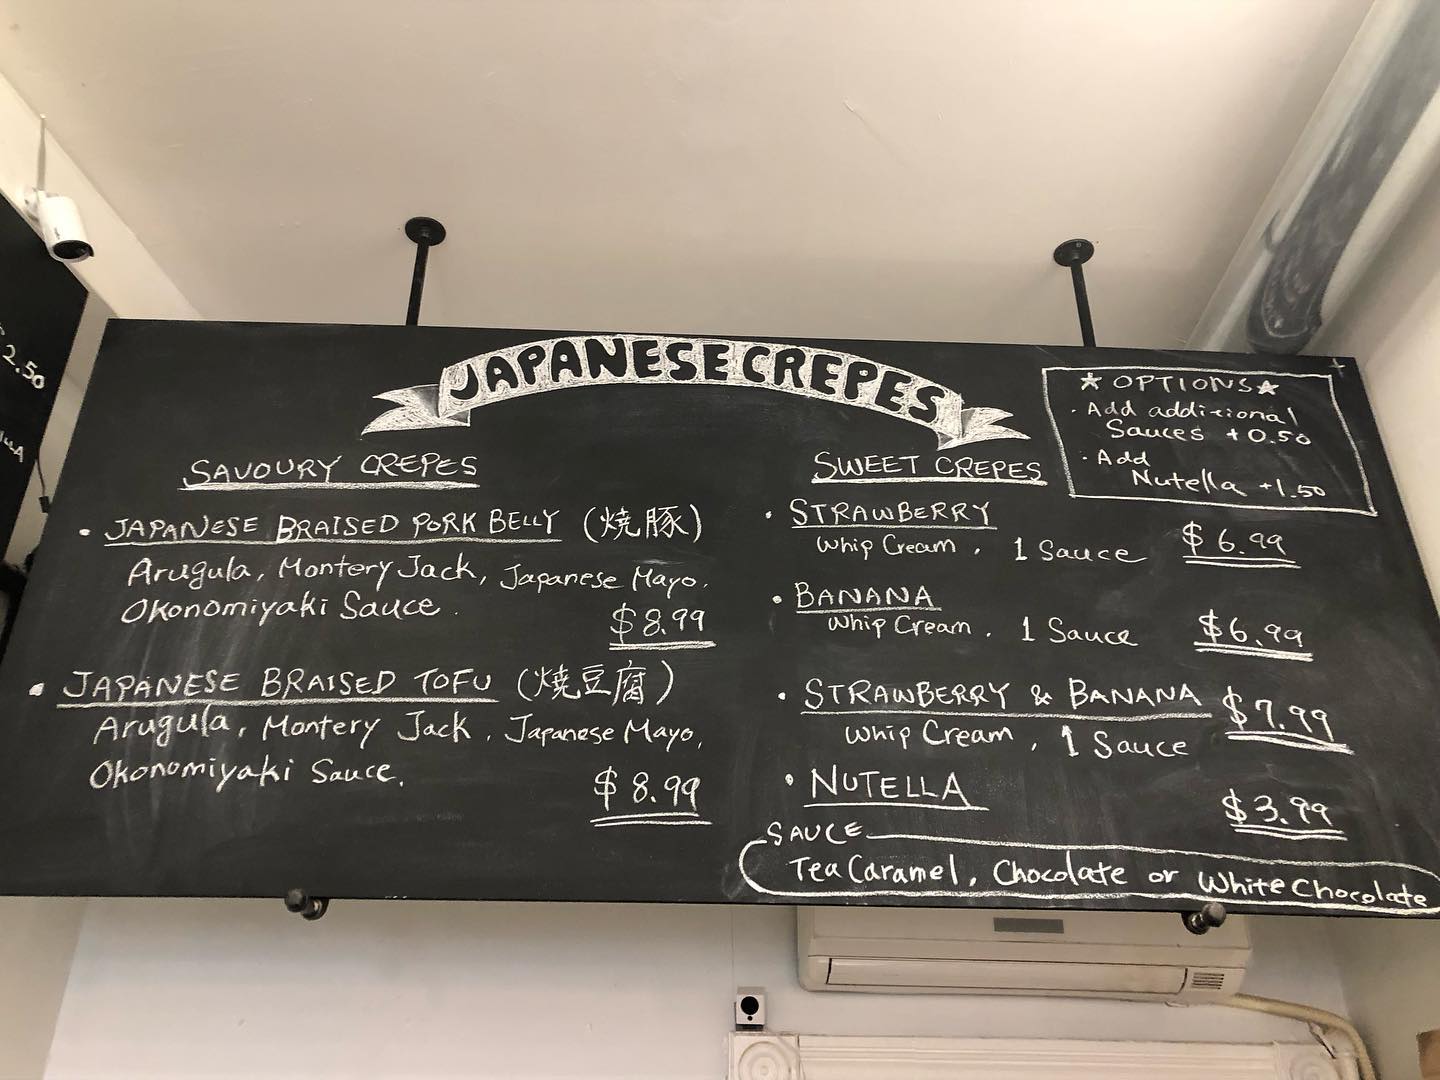 JAPANESE CREPES
SAVOURY CREPES
• JAPANESE BRAISED PORK BELLY (焼豚)
Arugula, Montery Jack, Japanese Mayo,
Okonomiyaki Sauce.
$8.99
• JAPANESE BRAISED TOFU (焼豆腐)
Arugula, Montery Jack, Japanese Mayo,
Okonomiyaki Sauce.
$8.99
SWEET CREPES
• STRAWBERRY
Whip Cream, 1 Sauce
$6.99
• BANANA
Whip Cream, 1 Sauce
$6.99
• STRAWBERRY & BANANA $7.99
Whip Cream, 1 Sauce
• NUTELLA
$3.99
SAUCE
Tea Caramel, Chocolate or White Chocolate
★ OPTIONS ★
• Add additional
Sauces +0.50
• Add
Nutella +1.50
2.50